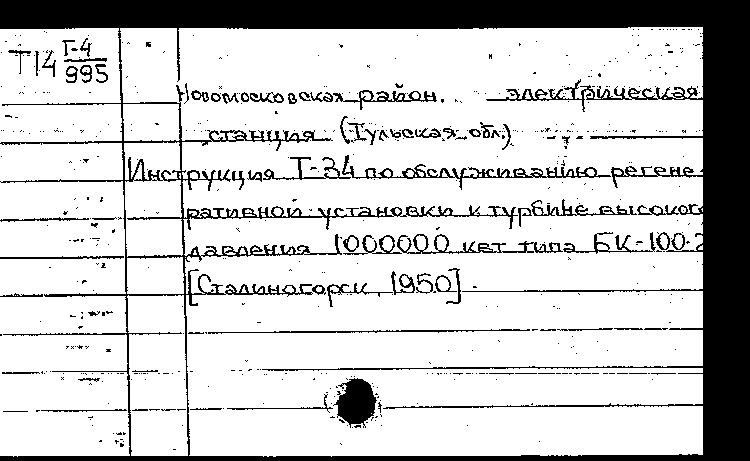 Т14 Т-4
995
Новомосковская район. электрическая
станция (Тульская обл.)
Инструкция Т-34 по обслуживанию регене-
ративной установки к турбине высокого
давления 1000000 квт типа БК-100-2
[Сталиногорск, 1950].